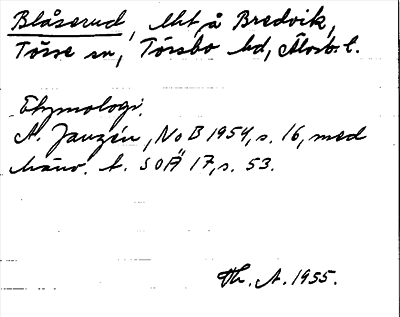 Blåserud, lht å Bredvik,
Tösse sn, Tössbo hd, Älvsb. l.
Etymologi.
A. Janzén, NoB 1954, s. 16, med
hänv. t. SOÄ 17, s. 53.
Th. A. 1955.